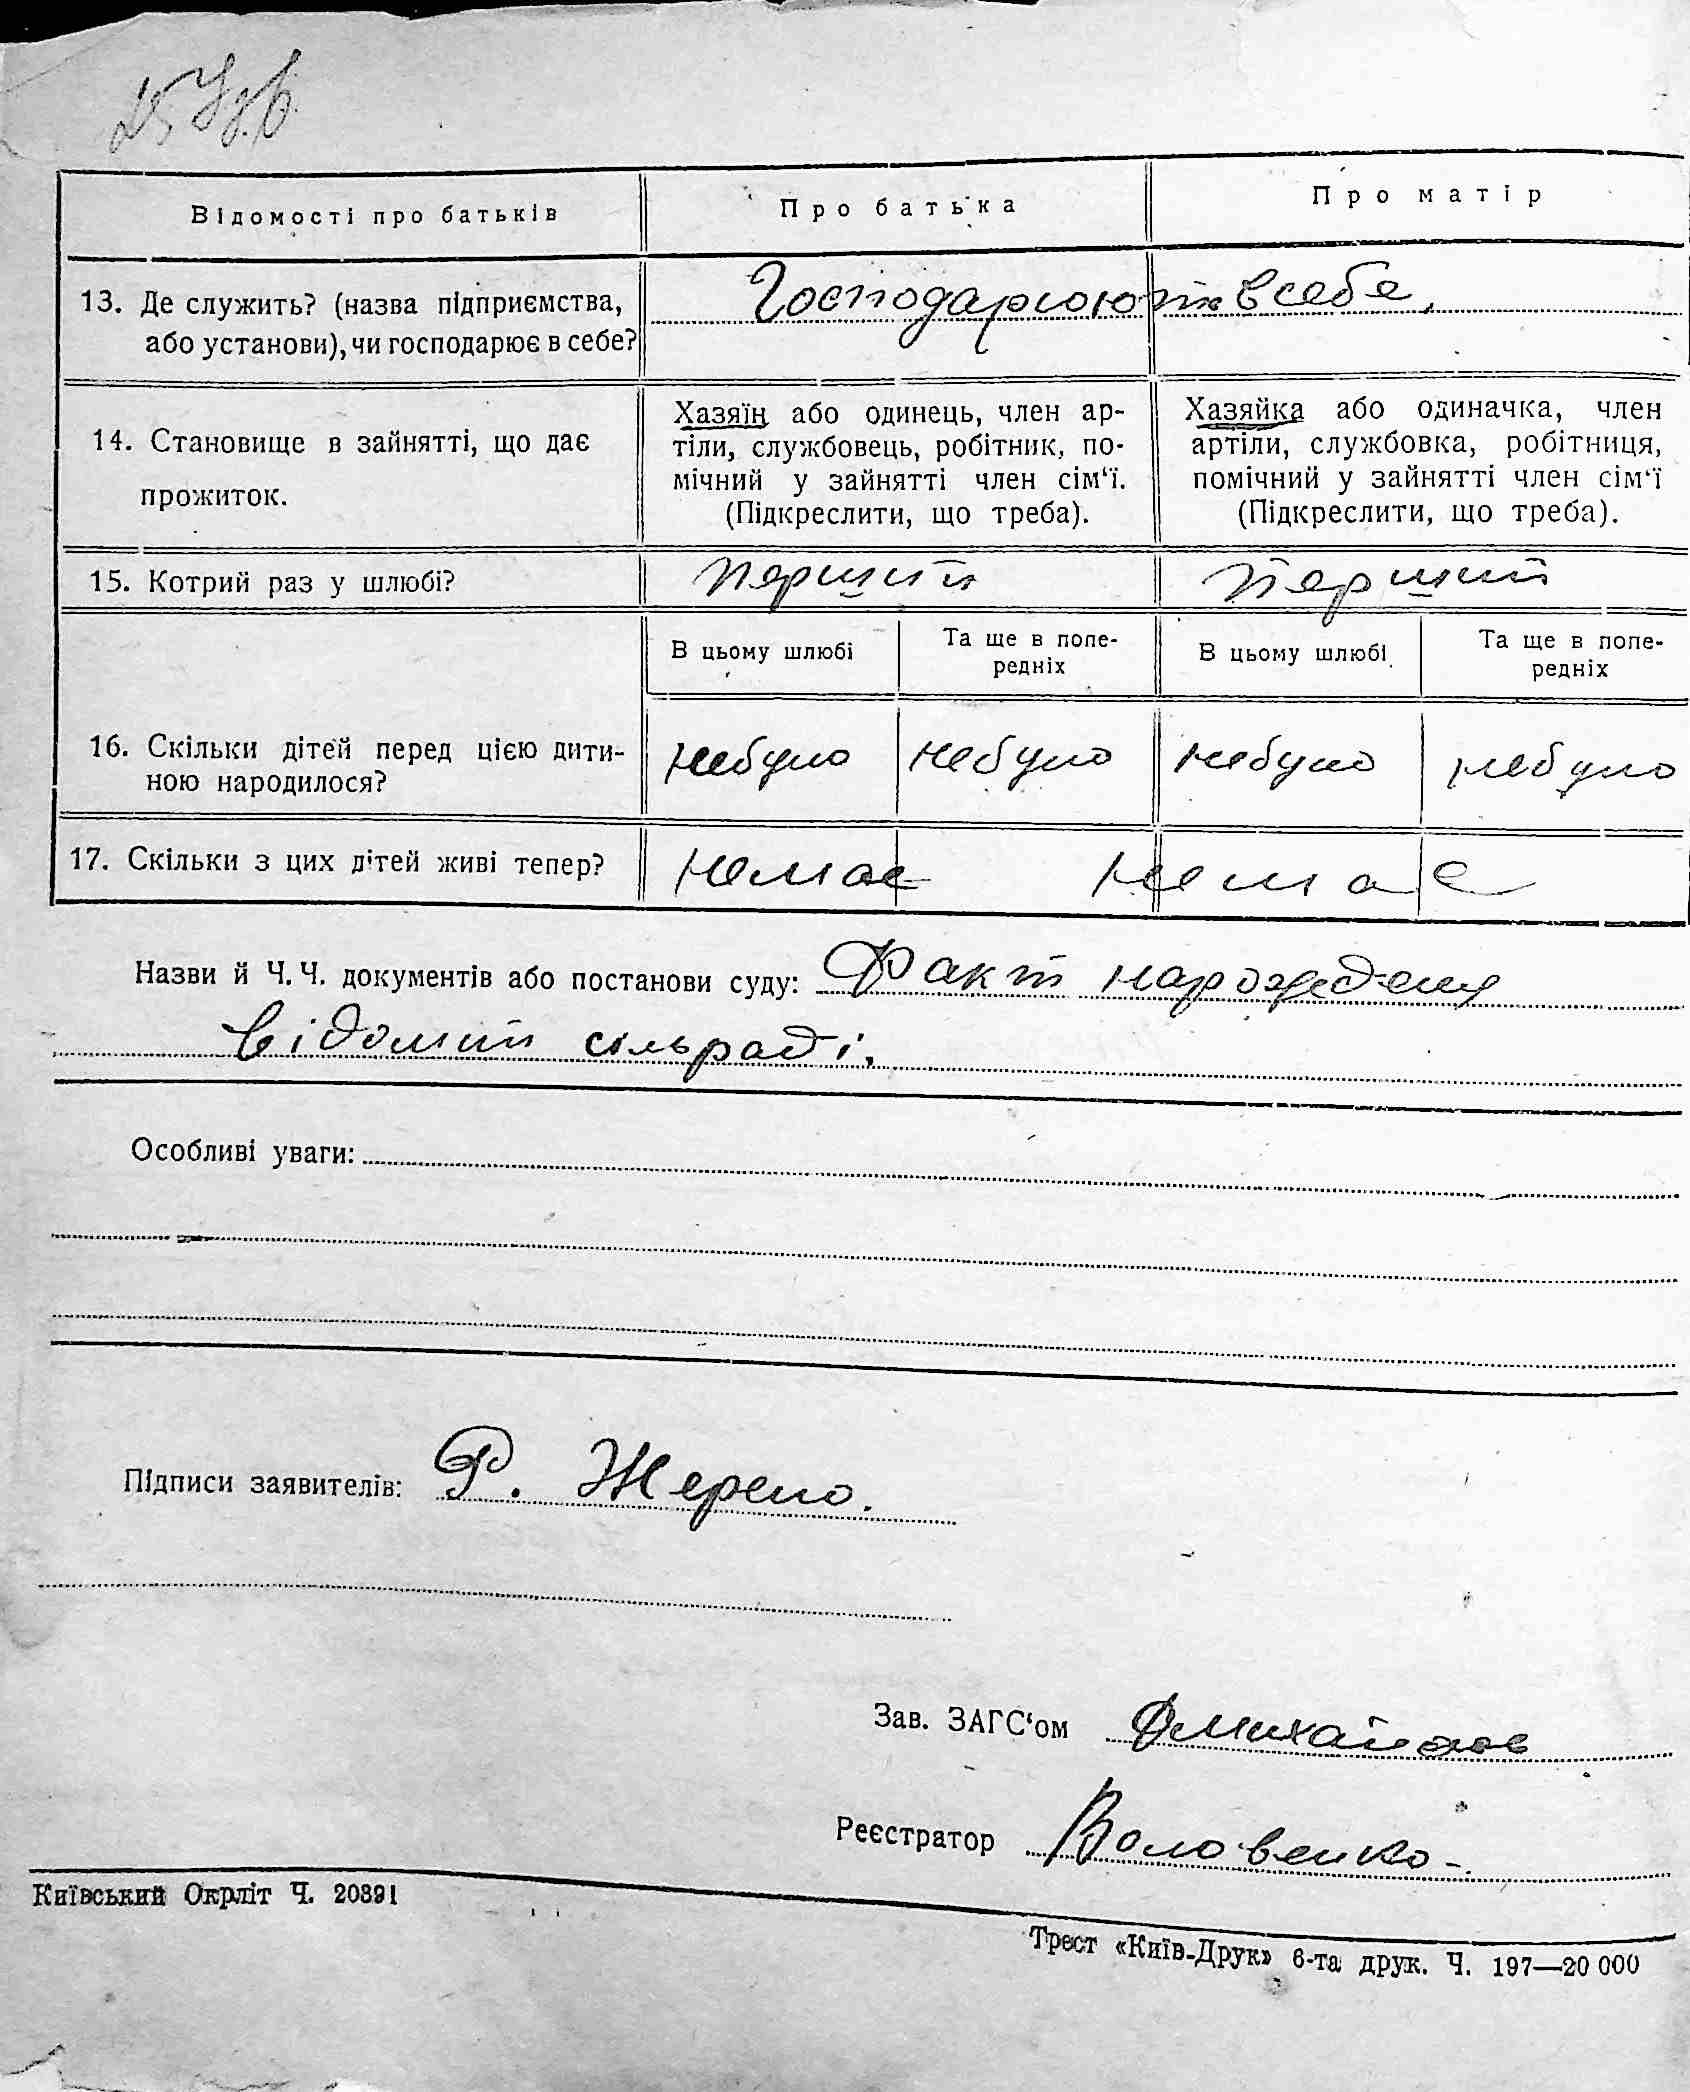 Відомості про батьків
Про батька
Про матір
13. Де служить? (назва підприємства,
або установи), чи господарює в себе?
Господарюють в себе,
14. Становище в зайнятті, що дає
прожиток.
Хазяїн або одинець, член ар-
тіли, службовець, робітник, по-
мічний у зайнятті член сім‘ї.
(Підкреслити, що треба).
Хазяйка або одиначка, член
артіли, службовка, робітниця,
помічний у зайнятті член сім‘ї
(Підкреслити, що треба).
15. Котрий раз у шлюбі?
перший
перший
В цьому шлюбі
Та ще в попе-
редніх
В цьому шлюбі
Та ще в попе-
редніх
16. Скільки дітей перед цією дити-
ною народилося?
небуло
небуло
небуло
небуло
17. Скільки з цих дітей живі тепер?
немає
немає
Назви й Ч.Ч. документів або постанови суду: Факт народження
відомий сільраді,
Особливі уваги:
Підписи заявителів: Р. Жерело.
Зав. ЗАГС‘ом Михайлов
Реєстратор Воловенко
Київський Окрліт Ч. 20391
Трест «Київ-Друк» 6-та друк. Ч. 197—20 000